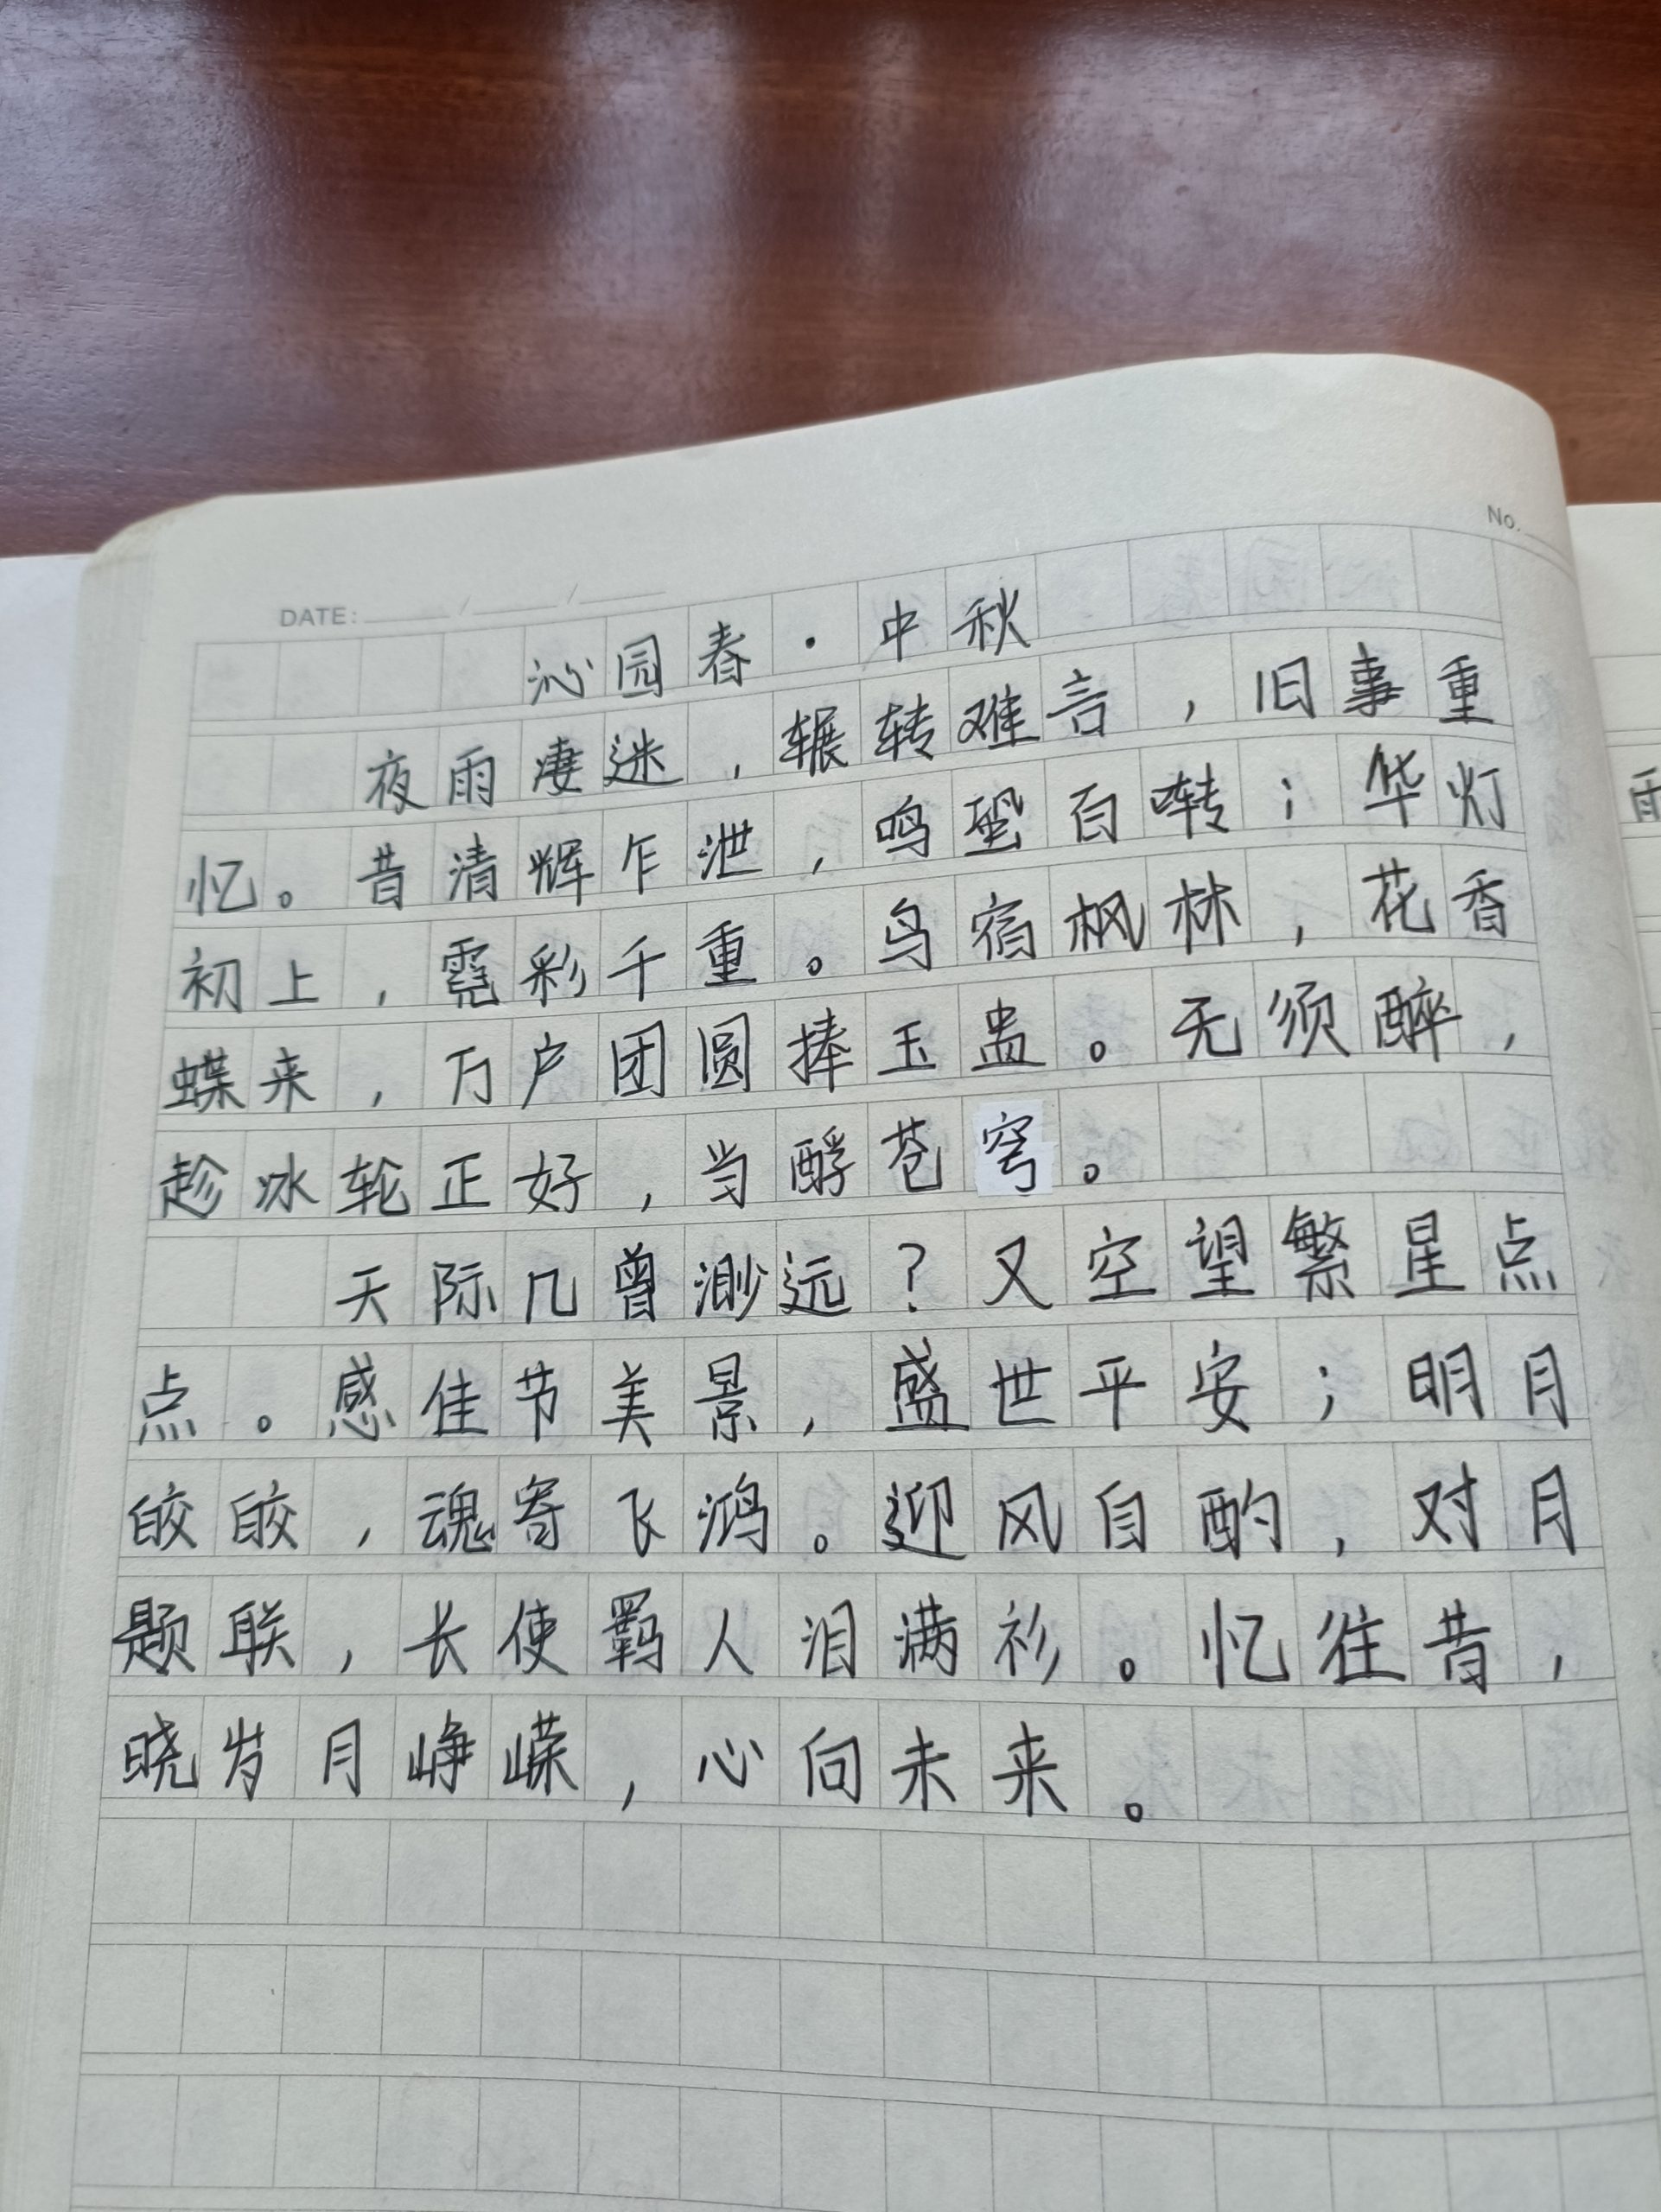 DATE: / /
No.
沁园春·中秋
夜雨凄迷，辗转难言，旧事重
忆。昔清辉乍泄，鸣蛩百啭；华灯
初上，霓彩千重。鸟宿枫林，花香
蝶来，万户团圆捧玉盅。无须醉，
趁冰轮正好，当酹苍穹。
天际几曾渺远？又空望繁星点
点。感佳节美景，盛世平安；明月
皎皎，魂寄飞鸿。迎风自酌，对月
题联，长使羁人泪满衫。忆往昔，
晓岁月峥嵘，心向未来。